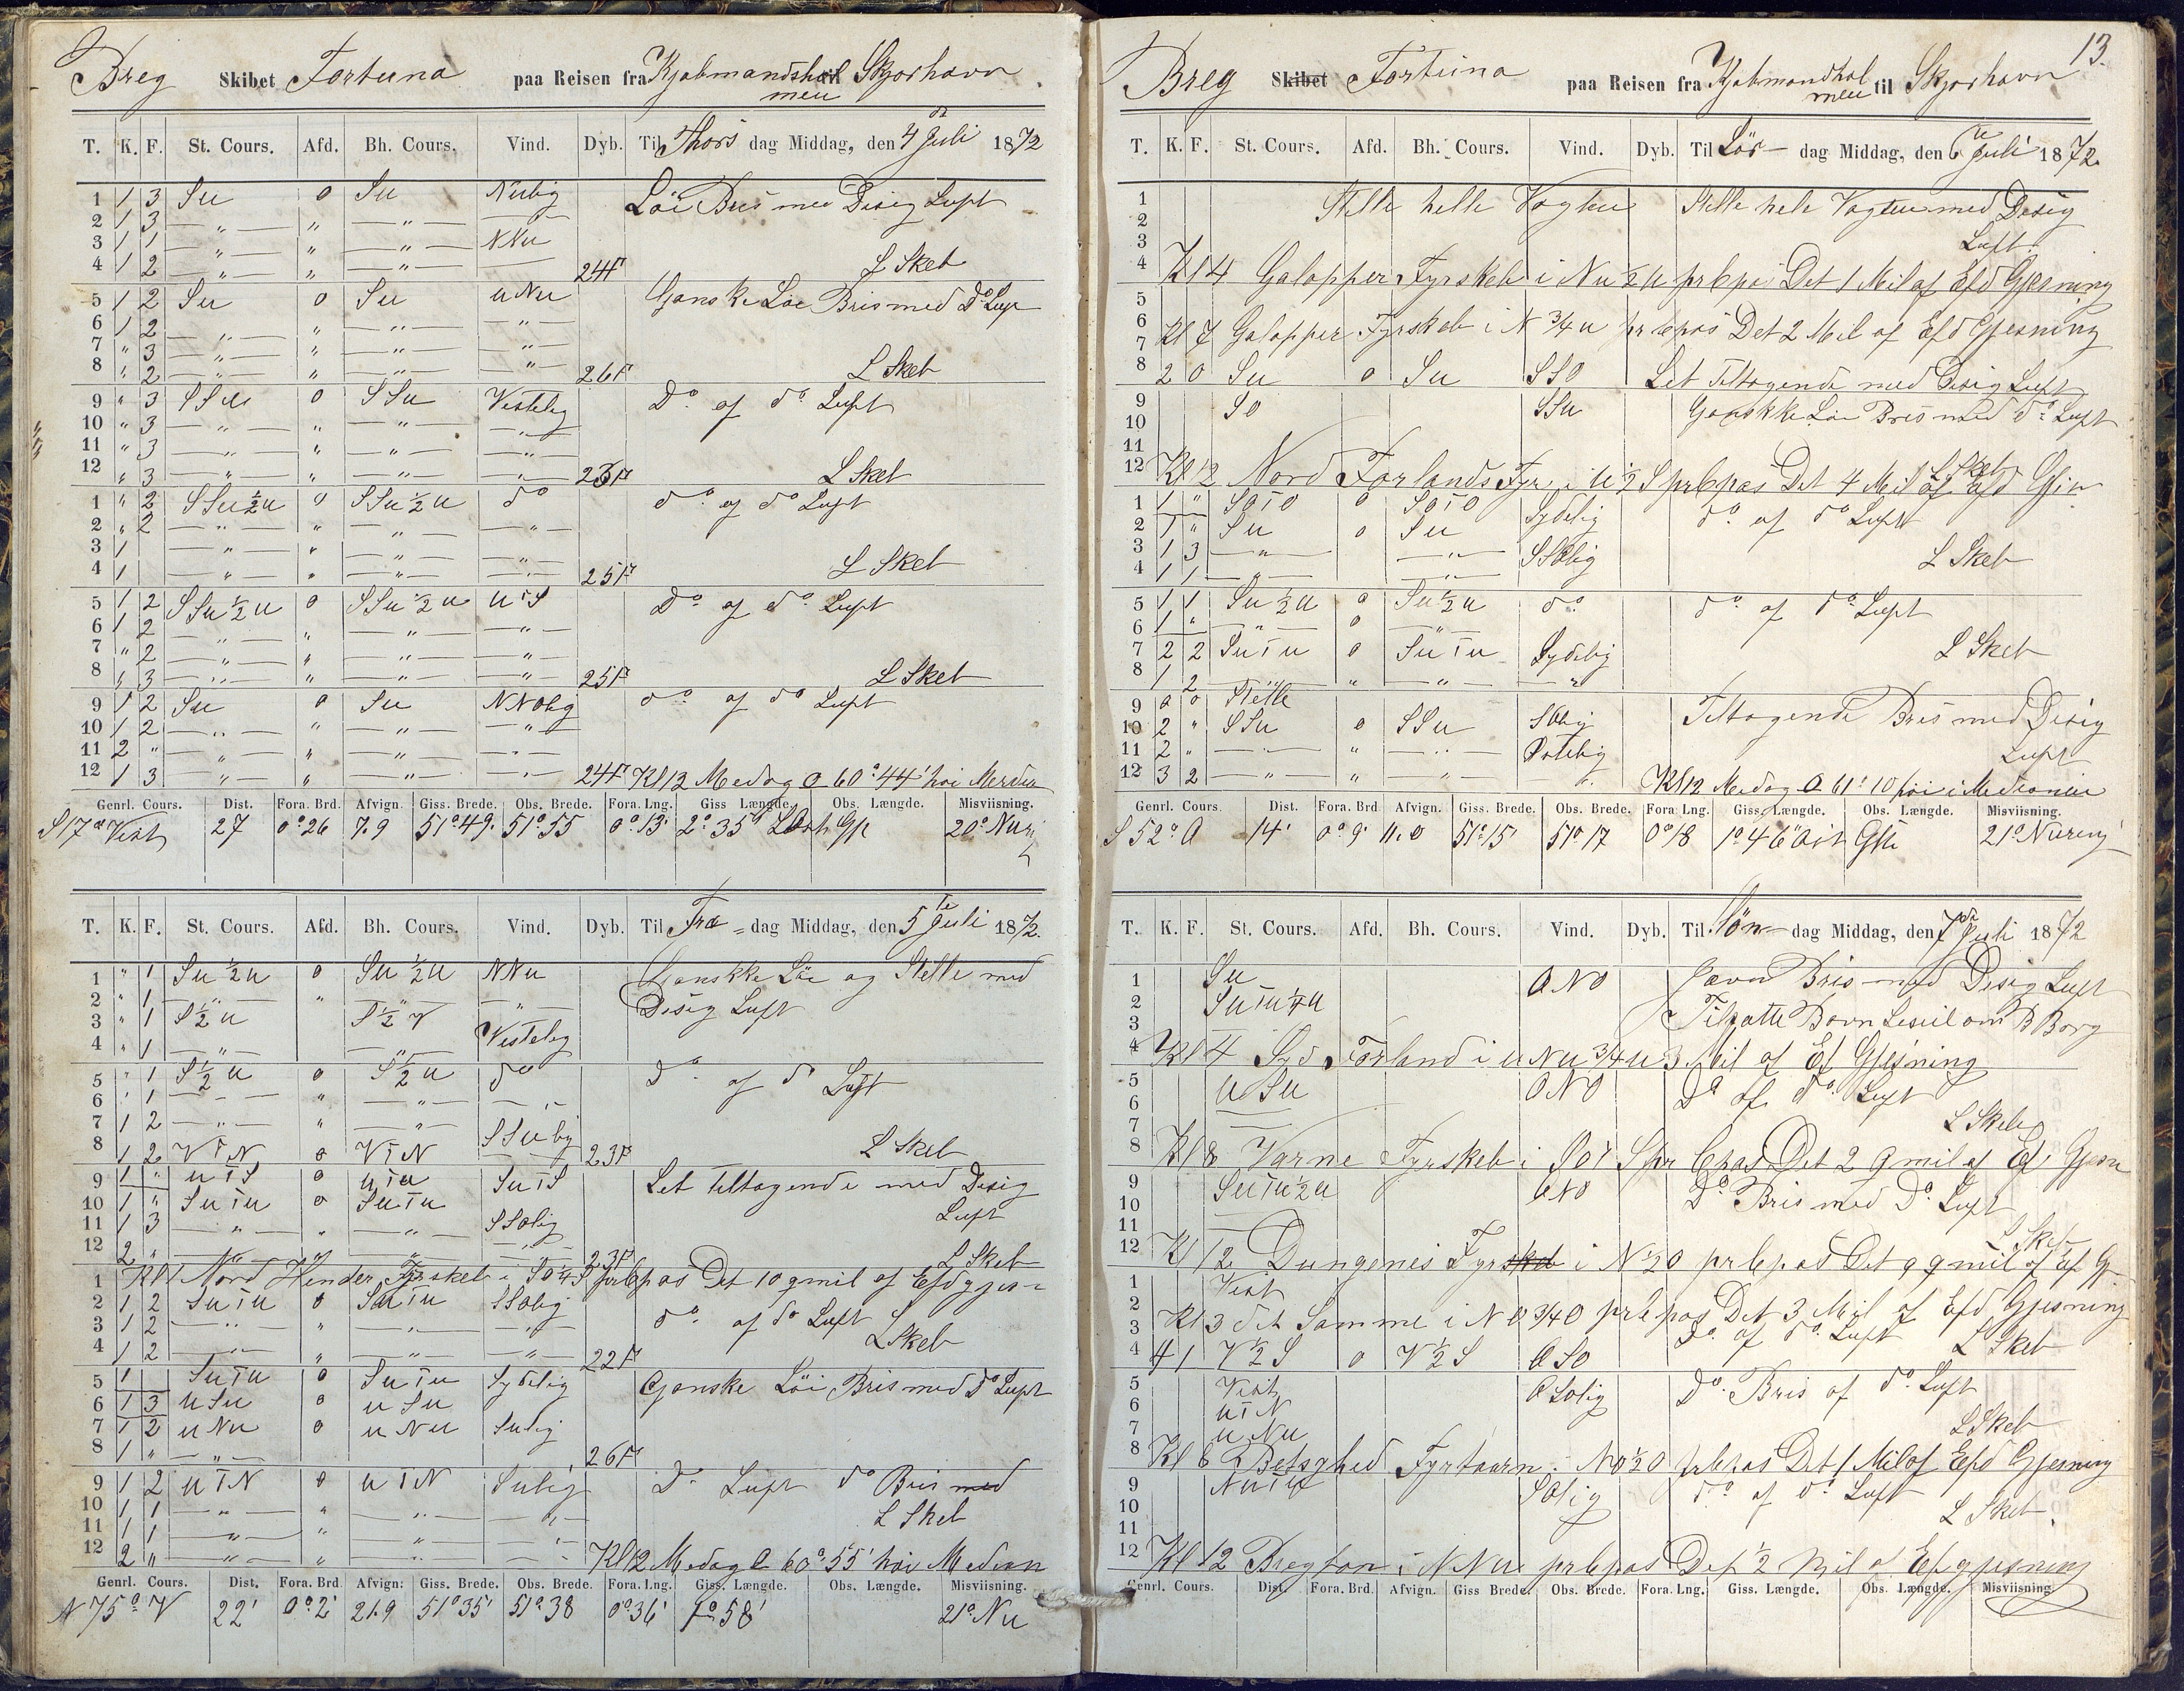 Breg Skibet Fortuna paa Reisen fra Kjobmandshol til Skjorhavn
men
T. K. F. St. Cours. Afd. Bh. Cours. Vind. Dyb. Til Thors dag Middag, den 4 de Juli 1872
1 1 3 Su 0 Su Nulig Löi Bris med Disig Luft
2 1 3 — " — " — " — — " —
3 1 1 — " — " — " — NNu
4 1 2 — " — " — " — 24 F L Skeb
5 1 2 Su 0 Su uNu Ganske Löe Bris med Do Luf
6 1 2 — " — " — " — — " —
7 " 3 — " — " — " — — " —
8 " 2 — " — " — " — " 26 F L Skeb
9 " 3 SSu 0 SSu Vestelig Do of do Luft
10 " 3 — " — " — " — — " —
11 " 3 — " — " — " — — " —
12 " 3 — " — " — " — — " — 23 F L Skeb
1 " 2 SSu ½ u 0 SSu ½ u do do of do Luft
2 " 2 — " — " — " — — " —
3 1 — " — " — " — — " —
4 1 — " — " — " — — " — 25 F L Skeb
5 1 2 SSu ½ u 0 SSu ½ u uTS Do of do Luft
6 1 2 — " — " — " — — " —
7 " 2 — " — " — " — — " —
8 " 3 — " — " — " — 25 F L Skeb
9 1 2 Su 0 Su NNolig do of do Luft
10 1 2 — " — " — " — — " —
11 2 " — " — " — " — — " —
12 1 3 — " — " — " — — " — 24 F Kl 12 Medag O 60° 44' höi Merdian
Genrl. Cours. Dist. Fora. Brd. Afvign. Giss. Brede. Obs. Brede. Fora. Lng. Giss Længde. Obs. Længde. Misviisning.
S 17° Vest 27 0° 26 7.9 51° 49' 51° 55 0° 13' 2° 35' 20° Nu
T. K. F. St. Cours. Afd. Bh. Cours. Vind. Dyb. Til Fre - dag Middag, den 5 te Juli 1872.
1 " 1 Su ½ u 0 Su ½ u NNu Ganskke Löe og Stelle med
2 " 1 — " — " — " — — " — Disig Luft
3 " 1 S ½ u S ½ V Vestelig
4 " 1 — " — — " —
5 " 1 S ½ u 0 S ½ u do Do of do Luft
6 " 1 — " — " — " — — " —
7 1 2 — " — " — " — SSulig
8 1 2 VTN 0 VTN 23 F L Skeb
9 1 " uTS 0 uTu SuTS Let teltagende med Desig
10 1 " SuTu 0 SuTu Luft
11 1 3 — " — " — " — SSolig
12 2 " — " — " — " — — " — 23 F L Skeb
1 Kl 1 Nord Hender Fyrskeb i So ¼ S prkpas Det 10 gmil of Efd gjes
2 1 2 SuTu 0 SuTu SSolig do of do Luft
3 1 2 — " — " — " — — " —
4 1 2 — " — " — " — — " — 22 F L Skeb
5 1 SuTu 0 SuTu Sydelig Ganske Löi Bris med Do Luft
6 1 3 uSu 0 uSu
7 1 2 uNu 0 uNu Sulig
8 1 " — " — 26 F
9 1 2 uTN 0 uTN Sulig Do Luft do Bris med
10 1 1 — " — " — " — — " — L Skeb
11 1 1 — " — " — " — — " —
12 2 " — " — " — " — — " — Kl 12 Medag O 60° 55' höi Median
Genrl. Cours. Dist. Fora. Brd. Afvign. Giss. Brede. Obs. Brede. Fora. Lng. Giss. Længde. Obs. Længde. Misviisning.
N 75° V 22' 0° 2' 21.9 51° 35' 51° 38 0° 36' 1° 58' 21° Nu
13.
Breg Skibet Fortuna paa Reisen fra Kjobmandhol til Skjorhavn
men
T. K. F. St. Cours. Afd. Bh. Cours. Vind. Dyb. Til Lör - dag Middag, den 6 te Juli 1872.
1 Stelle helle Vagten Stelle hele Vagten med Desig
2 Luft
3
4 Kl 4 Galopper Fyrskeb i Nu ½ u prkpas Det 1 Mil af Efd Gjesning
5
6
7 Kl 7 Galopper Fyrskeb i N ¾ u prkpas Det 2 Mil af Efd Gjesning
8 2 0 Su 0 Su SSO Let Teltagende med Desig Luft
9 SO SSu Ganskke Löe Bris med do Luft
10
11 L Skeb
12 Kl 12 Nord Forlands Fyr i u ½ S prkpas Det 4 Mil af Efd Gjes
1 1 " SoTO 0 SoTO Sydelig do of do Luft
2 1 " Su 0 Su
3 1 3 — " — — " — SSOlig L Skeb
4 1 1 — " — — " —
5 1 1 Su ½ u 0 Su ½ u do do of do Luft
6 1 " — " — 0 — " —
7 2 2 SuTu 0 SuTu Sydelig L Skeb
8 1 2 — " — " — " — — " —
9 0 0 Stelle
10 2 " SSu 0 SSu SOlig Teltagende Bris med Desig
11 2 " — " — " — " — Ostelig Luft
12 3 2 — " — " — " — " Kl 12 Medag O 61° 10 höi i Medianen
Genrl. Cours. Dist. Fora. Brd. Afvign. Giss. Brede. Obs. Brede. Fora. Lng. Giss. Længde. Obs. Længde. Misviisning.
S 52° O 14' 0° 9' 11.0 51° 15' 51° 17 0° 18 1° 46' Ost 21°
T. K. F. St. Cours. Afd. Bh. Cours. Vind. Dyb. Til Sön - dag Middag, den 7 de Juli 1872
1 Su ONO Jævn Bris med Disig Luft
2 SuTu ¼ u Tilsatte Bovn Leseil om B Borg
3
4 Kl 4 Syd Forland i uNu ¾ u 3 Mil af Ef Gjesning
5 uSu ONO Do of do Luft
6
7 L Skeb
8 Kl 8 Varne Fyrskeb i SOTS pr kpas Det 2 gmil af Ef Gjesn
9 SuTu ½ u ONO Do Bris med Do Luft
10
11 L Skeb
12 Kl 12 Dungenes Fyrskeb i N ½ O prkpas Det 9 gmil af Ef G
1 Vest
2
3 Kl 3 det Samme i NO ¾ O prkpas Det 3 Mil af Efd Gjesning
Do of do Luft
4 4 1 V ½ S 0 V ½ S OSO L Skeb
5 Vest OSOlig Do Bris of do Luft
6 uTN
7 uNu L Skeb
8 Kl 8 Betsyhed Fyrtaarn i NO ½ O prkpas Det 1 Mil af Efd Gjesning
9 NuTu SOlig do of do Luft
10 L Skeb
11
12 Kl 12 i NNu prkpas Det ½ Mil af Ef gjesning
Genrl. Cours. Dist. Fora. Brd. Afvign. Giss Brede. Obs. Brede. Fora. Lng. Giss. Længde. Obs. Længde. Misviisning